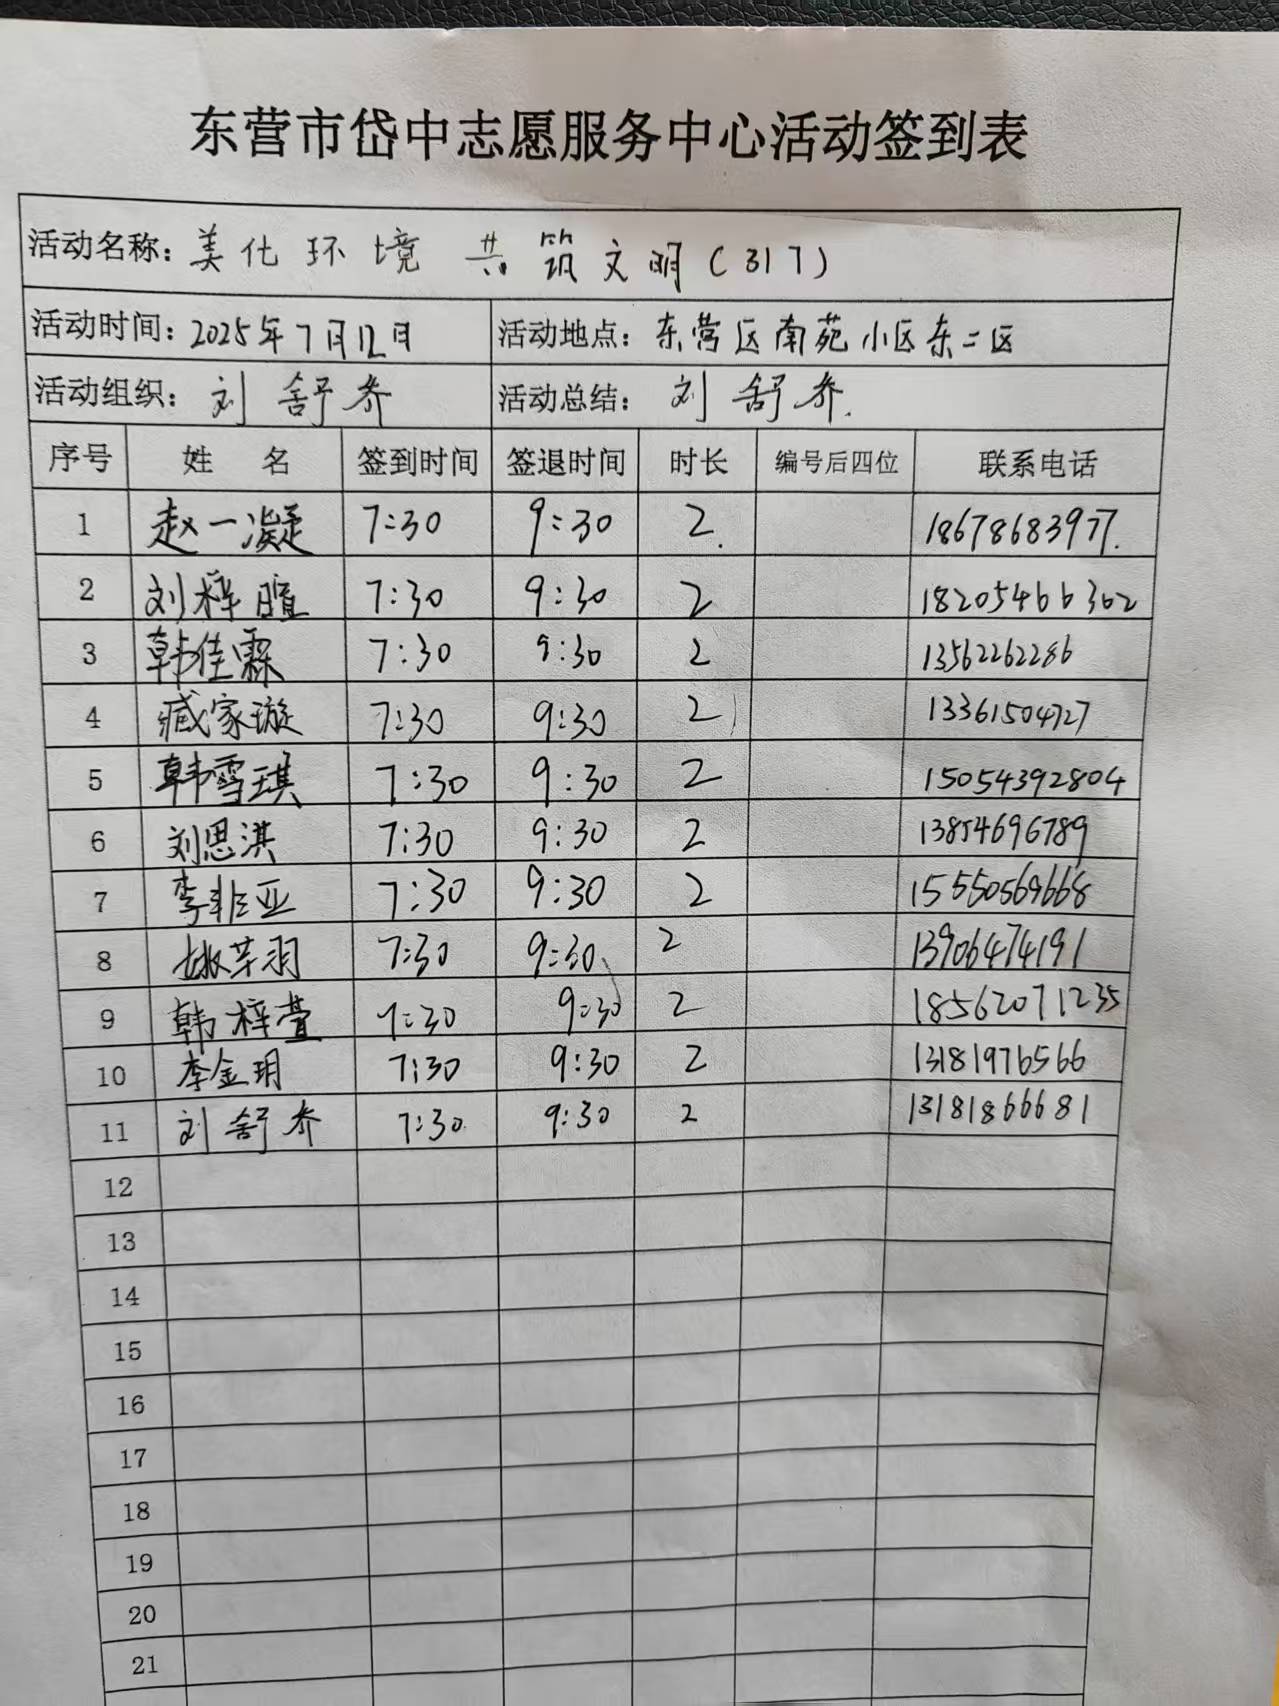 东营市岱中志愿服务中心活动签到表
活动名称：美化环境 共筑文明（317）
活动时间：2025年7月12日 活动地点：东营区南苑小区东二区
活动组织：刘舒乔 活动总结：刘舒乔.
序号 姓名 签到时间 签退时间 时长 编号后四位 联系电话
1 赵一凝 7:30 9:30 2. 18678683977.
2 刘梓暄 7:30 9:30 2 18205466302
3 韩佳霖 7:30 9:30 2 13562262286
4 臧家璇 7:30 9:30 2 13361504727
5 韩雪琪 7:30 9:30 2 15054392804
6 刘思淇 7:30 9:30 2 13854696789
7 李非亚 7:30 9:30 2 15550569668
8 姚芊羽 7:30 9:30 2 13906474191
9 韩梓萱 7:30 9:30 2 18562071235
10 李金玥 7:30 9:30 2 13181976566
11 刘舒乔 7:30 9:30 2 13181866681
12
13
14
15
16
17
18
19
20
21